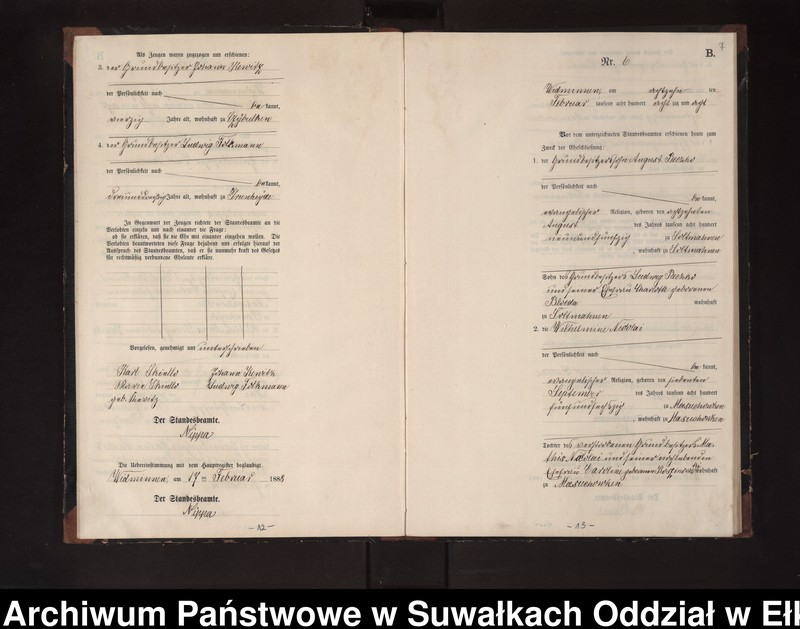 Als Zeugen waren zugezogen und erschienen:
3. der Grundbesitzer Johann
der Persönlichkeit nach
be kannt,
vierzig Jahre alt, wohnhaft zu
4. der Grundbesitzer Ludwig
der Persönlichkeit nach
be kannt,
dreiunddreißig Jahre alt, wohnhaft zu
In Gegenwart der Zeugen richtete der Standesbeamte an die
Verlobten einzeln und nach einander die Frage:
ob sie erklären, daß sie die Ehe mit einander eingehen wollen. Die
Verlobten beantworteten diese Frage bejahend und erfolgte hierauf der
Ausspruch des Standesbeamten, daß er sie nunmehr kraft des Gesetzes
für rechtmäßig verbundene Eheleute erkläre.
Vorgelesen, genehmigt und unterschrieben
Karl Johann
Marie Ludwig
geb.
Der Standesbeamte.
Nippa
Die Uebereinstimmung mit dem Hauptregister beglaubigt.
Widminnen, am 17 ten Februar 1888
Der Standesbeamte.
Nippa
-12-
7
B.
Nr. 6
Widminnen, am achtzehn ten
Februar tausend acht hundert acht zig und acht
Vor dem unterzeichneten Standesbeamten erschienen heute zum
Zweck der Eheschließung:
1. der Grundbesitzersohn August
der Persönlichkeit nach
be kannt,
evangelischer Religion, geboren den achtzehnten
August des Jahres tausend acht hundert
neunundfünfzig zu Soltmahnen
, wohnhaft zu Soltmahnen
Sohn des Grundbesitzers Ludwig
und seiner Ehefrau Charlotte geborenen
wohnhaft
zu Soltmahnen
2. die Wilhelmine Nikolai
der Persönlichkeit nach
be kannt,
evangelischer Religion, geboren den siebenten
September des Jahres tausend acht hundert
fünfundsechszig zu Masuchowken
, wohnhaft zu Masuchowken
Tochter des verstorbenen Grundbesitzers Ma-
Nikolai und seiner
Ehefrau Caroline geborenen wohnhaft
zu Masuchowken
-13-
Archiwum Państwowe w Suwałkach Oddział w Ełk